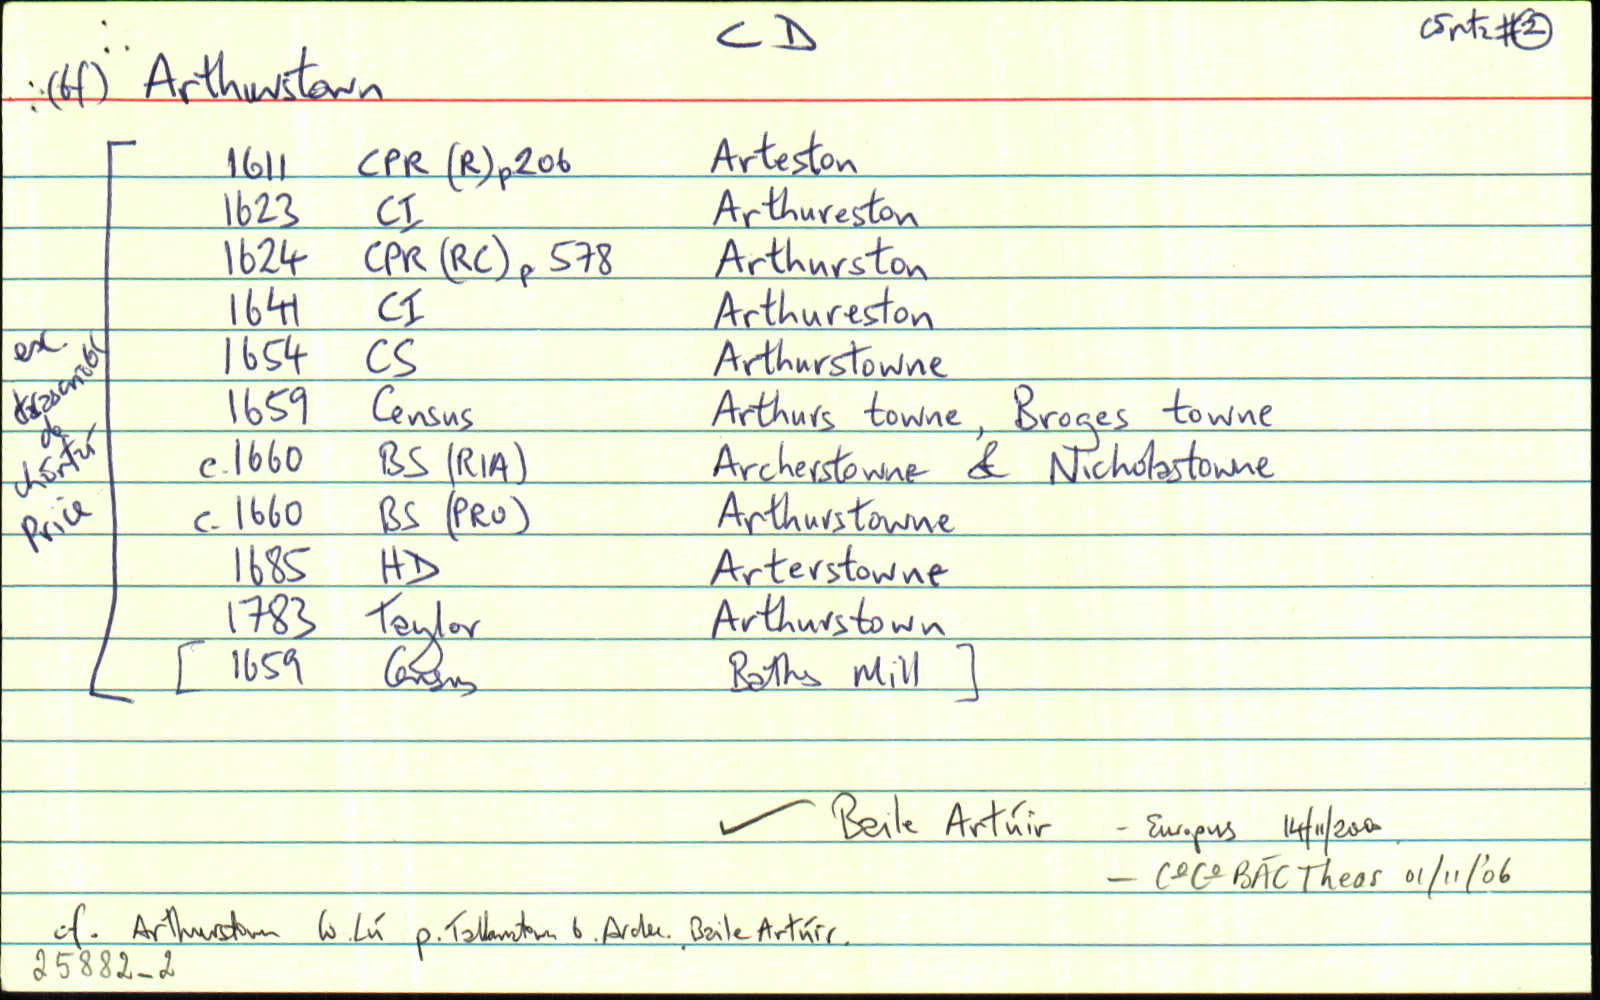 CD
cárta #2
∴ (bf) Arthurstown
1611 CPR (R) p206 Arteston
1623 CI Arthureston
1624 CPR (RC) p 578 Arthurston
1641 CI Arthureston
1654 CS Arthurstowne
1659 Census Arthurs towne, Broges towne
c.1660 BS (RIA) Archerstowne & Nicholastowne
c. 1660 BS (PRO) Arthurstowne
1685 HD Arterstowne
1783 Taylor Arthurstown
[ 1659 Census Baths Mill ]
Price
✓ Baile Artúir - Europus 14/11/2000
- CoCo BÁC Theas 01/11/'06
cf. Arthurstown Co. Lú p. Tallanstown b. Ardee. Baile Artúir.
25882-2